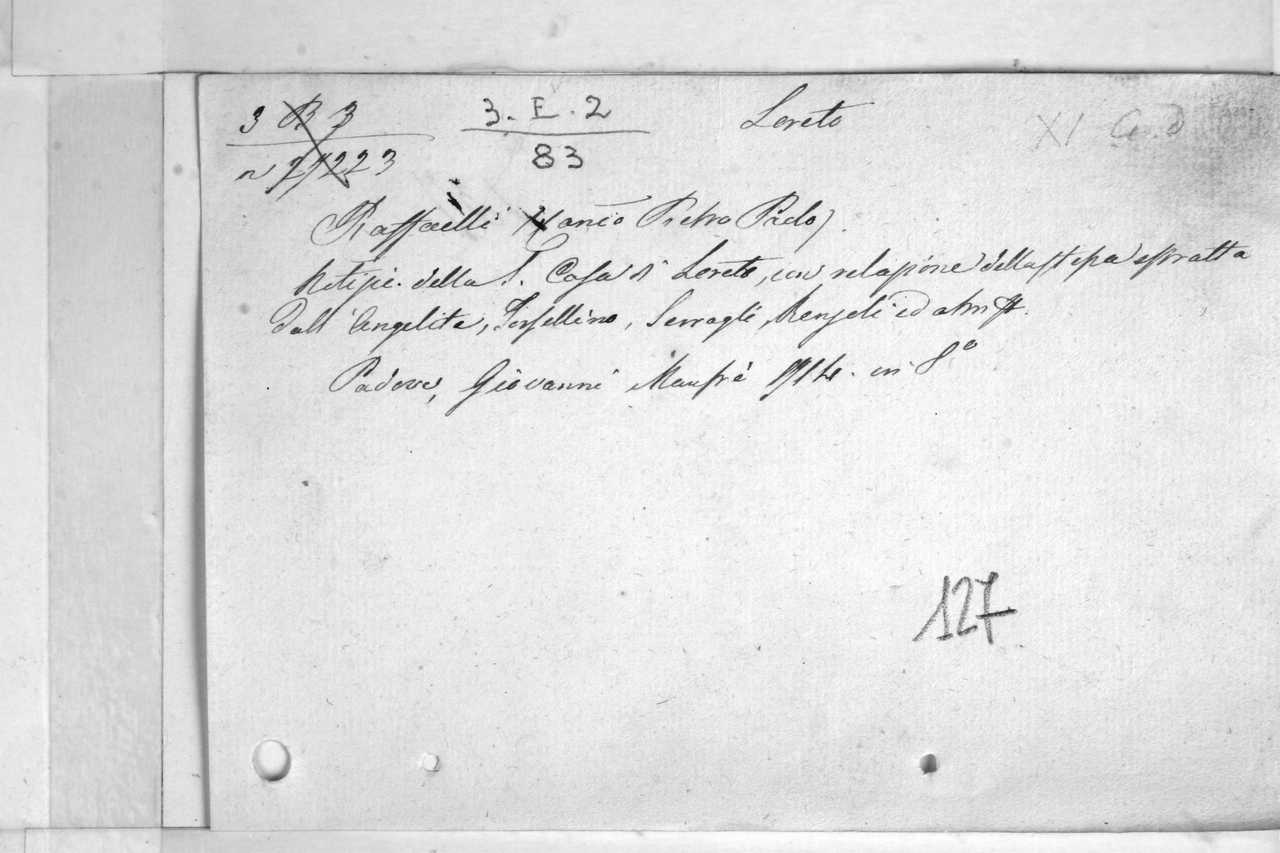 3 B 3 3. E. 2 Loreto XI
n 27223 83
Raffaelli Pietro Paolo).
Notizie della S. Casa di Loreto, con relazione della stessa estratta
dall'Angelita, Torsellino, Serragli, Renzoli ed altri
Padova, Giovanni Manfrè 1714. in 8°
127